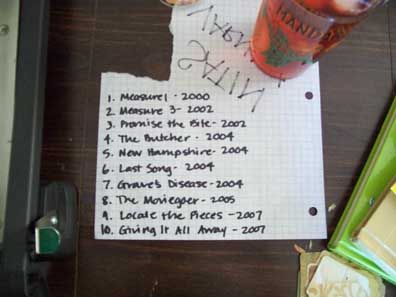 1. Measure 1 - 2000
2. Measure 3 - 2002
3. Promise the Bite - 2002
4. The Butcher - 2004
5. New Hampshire - 2004
6. Last Song - 2004
7. Grave's Disease - 2004
8. The Moviegoer - 2005
9. Locate the Pieces - 2007
10. Giving It All Away - 2007